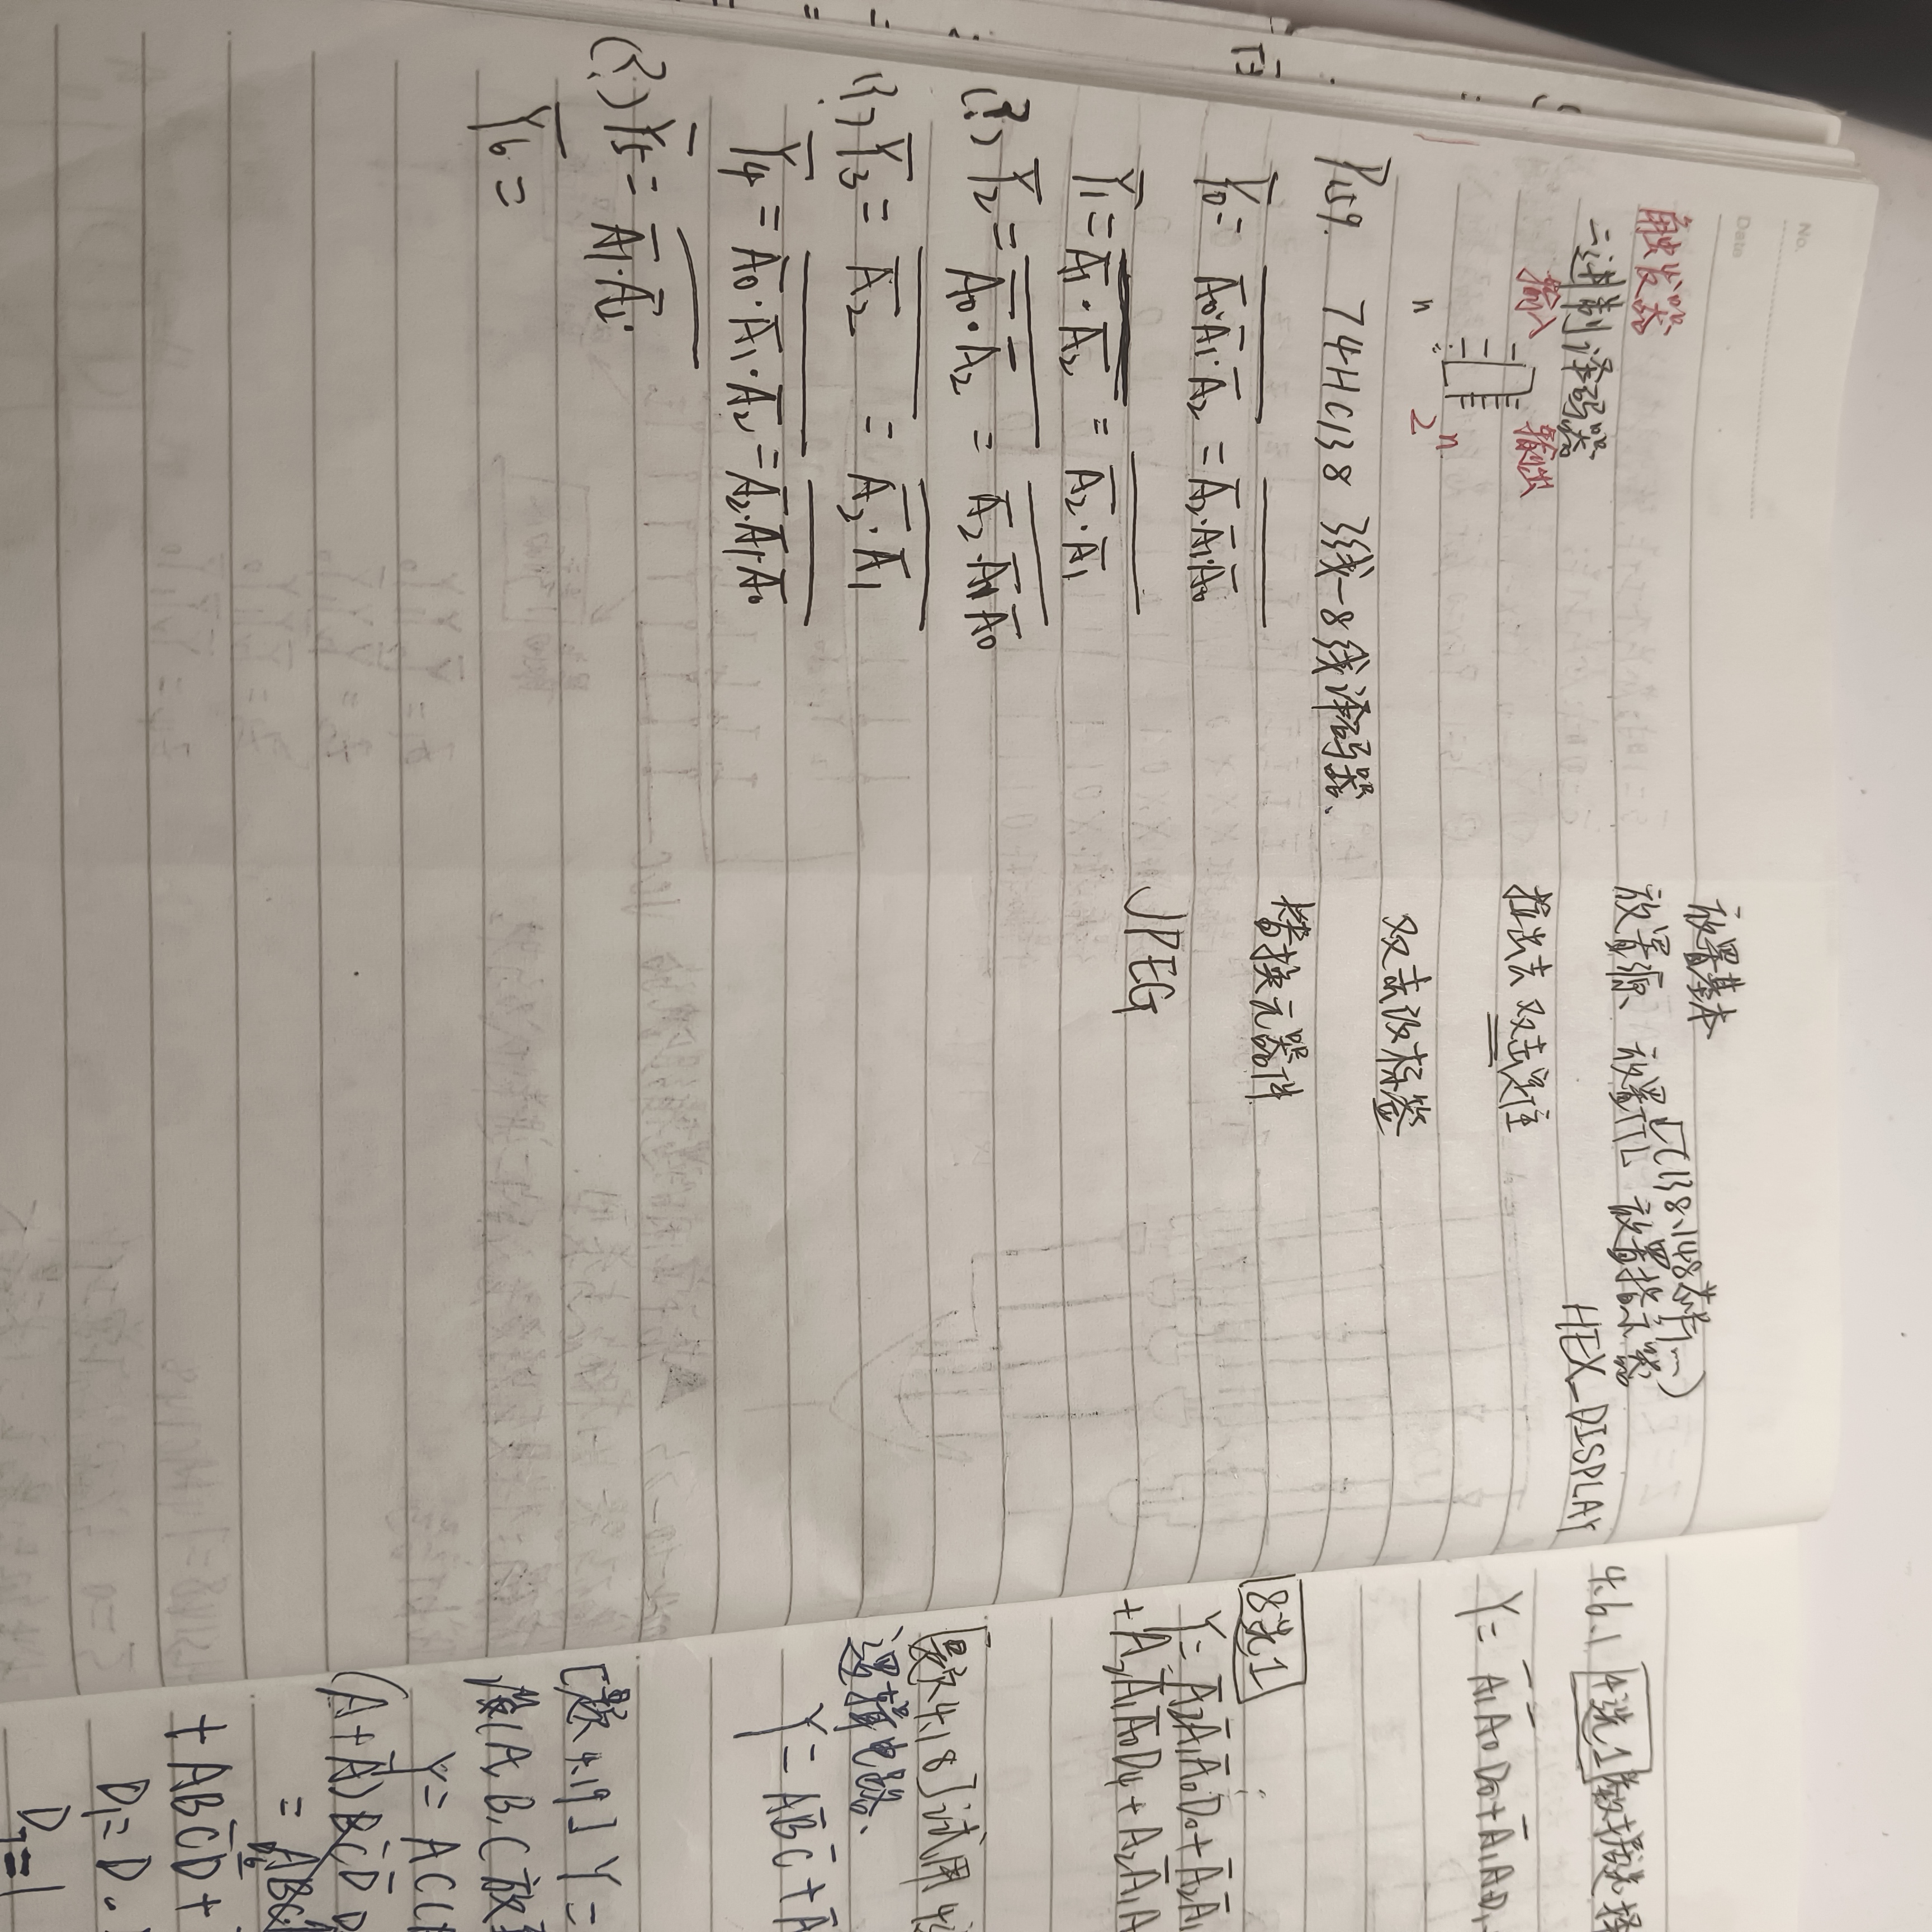 No.
Date
触发器
二进制译码器
输入 输出
n 2ⁿ
P159. 74HC138 3线-8线译码器、
Y̅0 = \overline{A̅0·A̅1·A̅2} = \overline{A̅2·A̅1·A̅0}
Y̅1 = \overline{A̅1·A̅2} = \overline{A̅2·A̅1}
(?) Y̅2 = \overline{A̅0·A̅2} = \overline{A̅2·A̅1A̅0}
(?) Y̅3 = \overline{A̅2} = \overline{A̅2·A̅1}
Y̅4 = \overline{A̅0·A̅1·A̅2} = \overline{A̅2·A̅1·A̅0}
(?) Y̅5 = \overline{A̅1·A̅2·}
Y̅6 =
放置基本
(138、148芯片...)
放置源、放置TTL 放置指示器
HEX_DISPLAY
拉出去 双击定住
双击改标签
替换元器件
JPEG
4.6.1 4选1数据选择
Y = A̅1A̅0D0+A̅1A0D1
8选1
Y = A̅2A̅1A̅0D0+A̅2A̅1
+A2A̅1A̅0D4+A2A̅1A
[题4.18]试用4
逻辑电路、
Y = AB̅C̅+A̅
[题4.19] Y =
设(A,B,C放
Y = AC(
(A+A̅)BC̅D̅
= ABC
+ABC̅D̅+
D1=D
D7=1